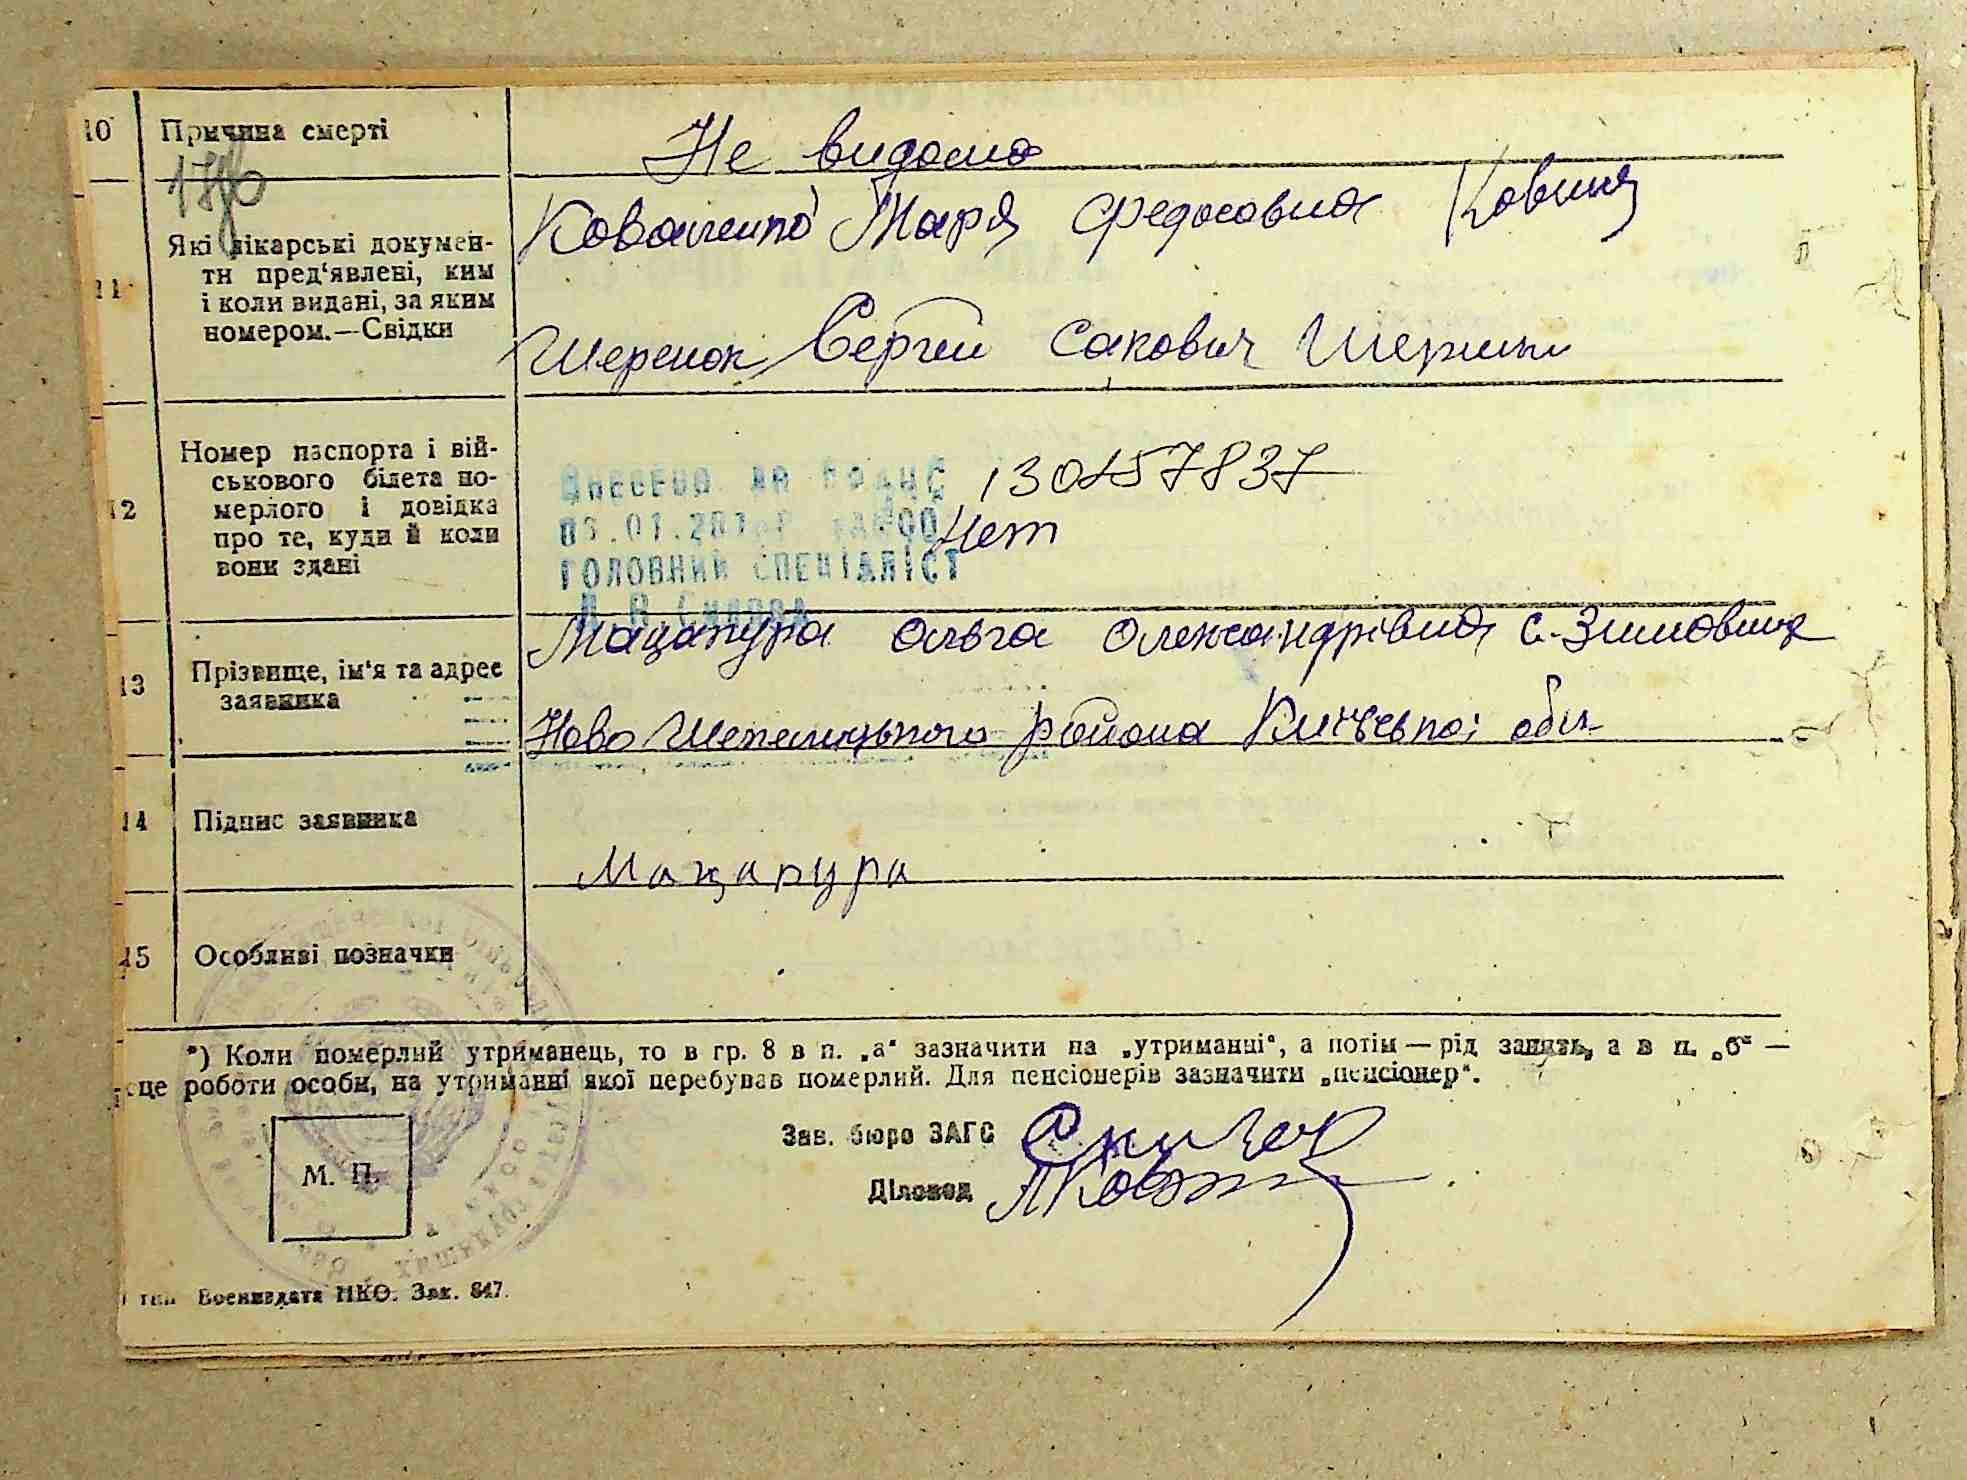 10 Причина смерті Не видомо
11 Які лікарські докумен-
ти пред'явлені, ким
і коли видані, за яким
номером.—Свідки
Коваленко Марія Федосовна
Шеренок Сергей Сакович
12 Номер паспорта і вій-
ськового білета по-
мерлого і довідка
про те, куди й коли
вони здані
Внесено до
130457837
Нет
ГОЛОВНИЙ СПЕЦІАЛІСТ
13 Прізвище, ім'я та адрес
заявника
Мацапура Ольга Олександрівна с. Зимовище
Ново Шепелицького района Київської обл
14 Підпис заявника
Мацапура
15 Особливі позначки
*) Коли померлий утриманець, то в гр. 8 в п. „а“ зазначити на „утриманні“, а потім — рід занять, а в п. „б“ —
сце роботи особи, на утриманні якої перебував померлий. Для пенсіонерів зазначити „пенсіонер“.
Зав. бюро ЗАГС
М. П.
Діловод
тип Воениздата НКО. Зак. 847.